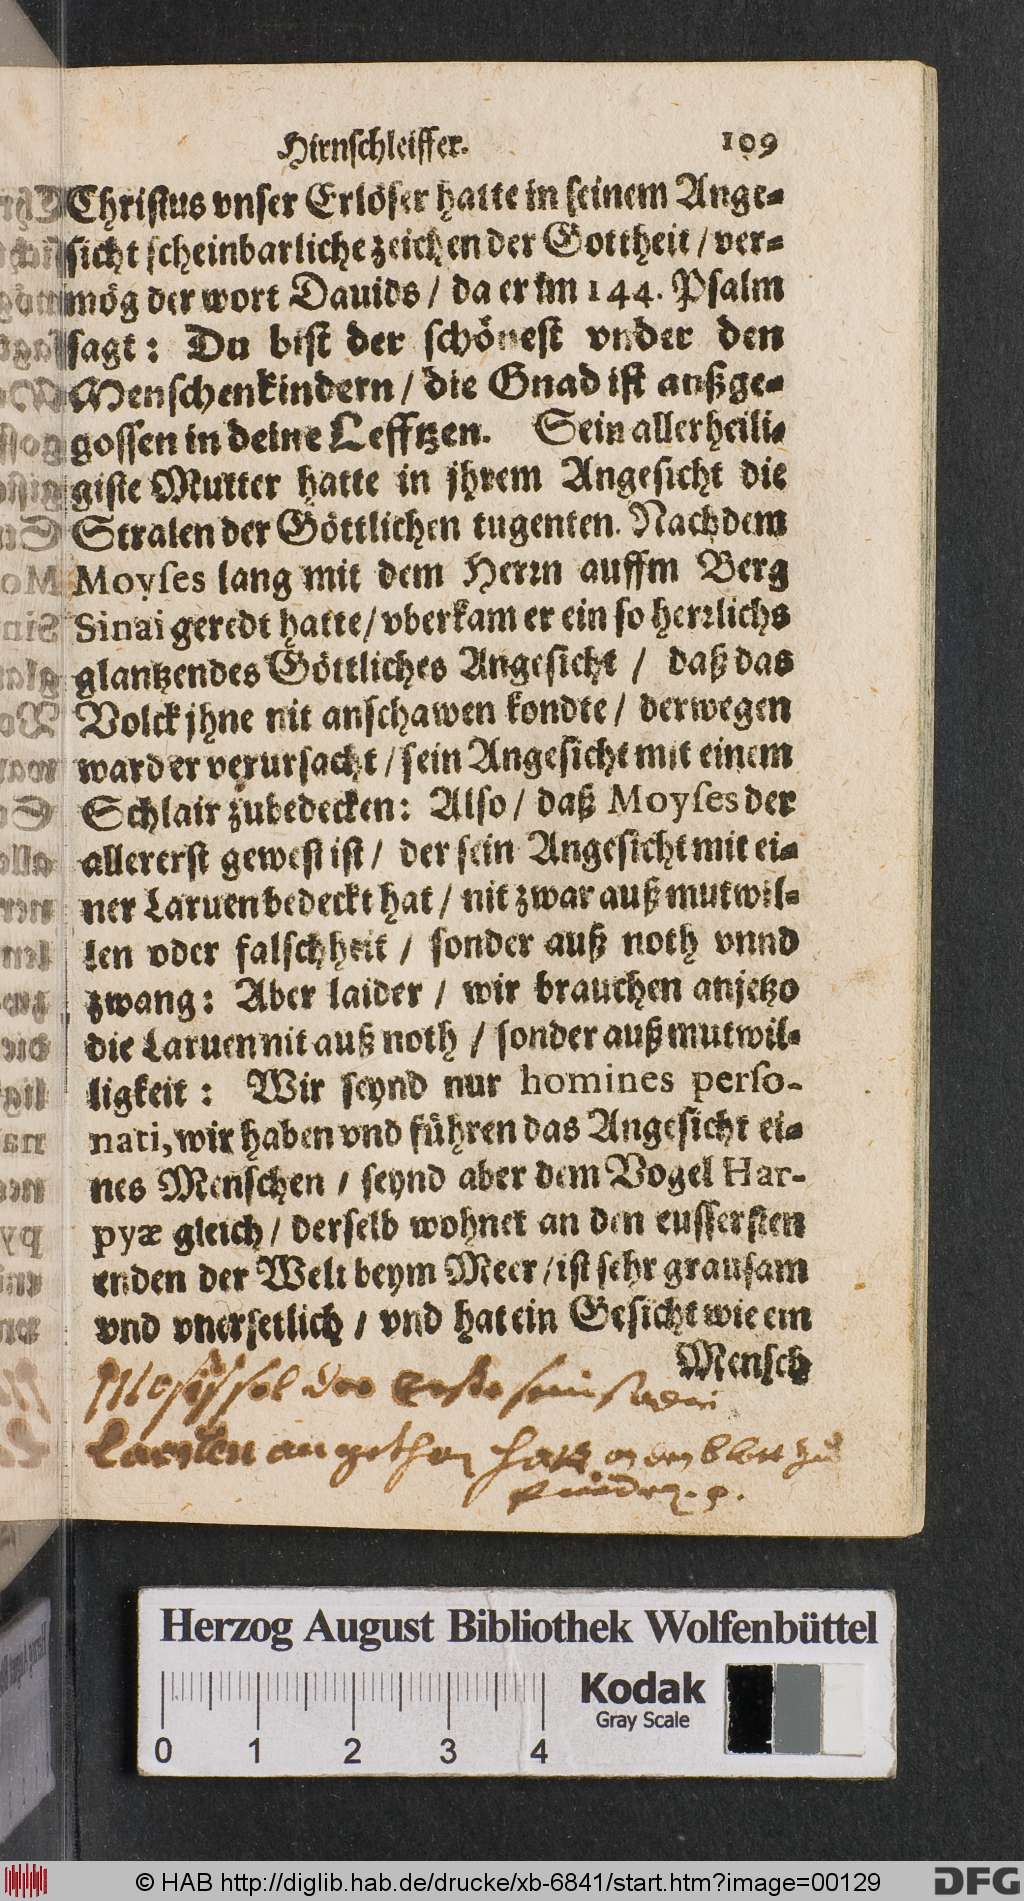 Hirnschleiffer. 109
Christus vnser Erlöser hatte in seinem Ange-
sicht scheinbarliche zeichen der Gottheit / ver-
mög der wort Dauids / da er im 144. Psalm
sagt: Du bist der schönest vnder den
Menschenkindern / die Gnad ist außge-
gossen in deine Lefftzen. Sein allerheili-
giste Mutter hatte in jhrem Angesicht die
Stralen der Göttlichen tugenten. Nachdem
Moyses lang mit dem Herrn auffm Berg
Sinai geredt hatte / vberkam er ein so herrlichs
glantzendes Göttliches Angesicht / daß das
Volck jhne nit anschawen kondte / derwegen
ward er verursacht / sein Angesicht mit einem
Schlair zubedecken: Also / daß Moyses der
allererst gewest ist / der sein Angesicht mit ei-
ner Laruen bedeckt hat / nit zwar auß mutwil-
len oder falschheit / sonder auß noth vnnd
zwang: Aber laider / wir brauchen anjetzo
die Laruen nit auß noth / sonder auß mutwil-
ligkeit: Wir seynd nur homines perso-
nati, wir haben vnd führen das Angesicht ei-
nes Menschen / seynd aber dem Vogel Har-
pyæ gleich / derselb wohnet an den eussersten
enden der Welt beym Meer / ist sehr grausam
vnd vnersetlich / vnd hat ein Gesicht wie ein
Mensch
der Erste sein
Laruen angethon hatt zu
Herzog August Bibliothek Wolfenbüttel
Kodak
Gray Scale
0 1 2 3 4
© HAB http://diglib.hab.de/drucke/xb-6841/start.htm?image=00129
DFG